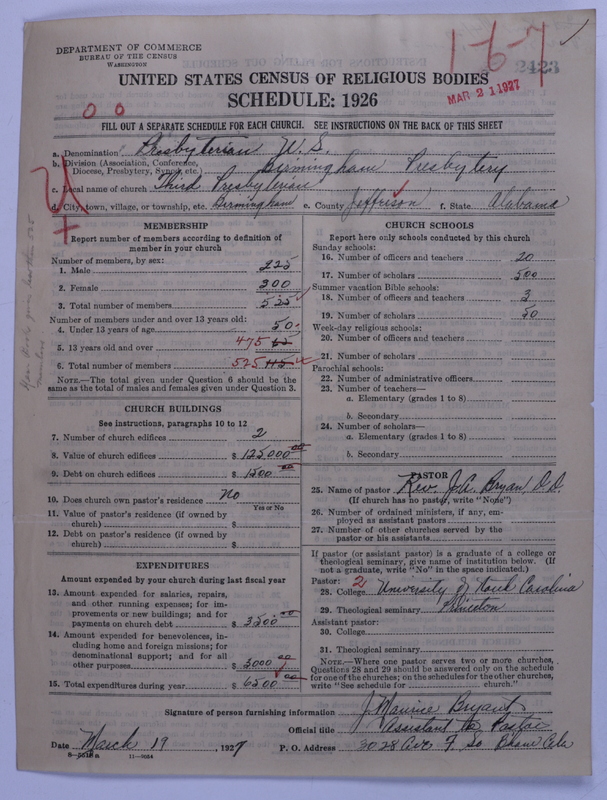 DEPARTMENT OF COMMERCE
BUREAU OF THE CENSUS
WASHINGTON
1-6-7
2423
MAR 21 1927
UNITED STATES CENSUS OF RELIGIOUS BODIES
SCHEDULE: 1926
0 0
FILL OUT A SEPARATE SCHEDULE FOR EACH CHURCH. SEE INSTRUCTIONS ON THE BACK OF THIS SHEET
a. Denomination Presbyterian U.S.
b. Division (Association, Conference, Diocese, Presbytery, Synod, etc.) Birmingham Presbytery
c. Local name of church Third Presbyterian
d. City, town, village, or township, etc. Birmingham e. County Jefferson f. State Alabama
MEMBERSHIP
Report number of members according to definition of
member in your church
Number of members, by sex:
1. Male 225
2. Female 300
3. Total number of members 525
Number of members under and over 13 years old:
4. Under 13 years of age 50
5. 13 years old and over 475
6. Total number of members 525 
NOTE.—The total given under Question 6 should be
same as the total of males and females given under Question 3.
CHURCH BUILDINGS
See instructions, paragraphs 10 to 12
7. Number of church edifices 2
8. Value of church edifices $ 125,000 00
9. Debt on church edifices $ 1500 00
10. Does church own pastor's residence No
Yes or No
11. Value of pastor's residence (if owned by
church) $
12. Debt on pastor's residence (if owned by
church) $
EXPENDITURES
Amount expended by your church during last fiscal year
13. Amount expended for salaries, repairs,
and other running expenses; for im-
provements or new buildings; and for
payments on church debt $ 3500 00
14. Amount expended for benevolences, in-
cluding home and foreign missions; for
denominational support; and for all
other purposes $ 3000 00
15. Total expenditures during year $ 6500 00
CHURCH SCHOOLS
Report here only schools conducted by this church
Sunday schools:
16. Number of officers and teachers 20
17. Number of scholars 500
Summer vacation Bible schools:
18. Number of officers and teachers 3
19. Number of scholars 50
Week-day religious schools:
20. Number of officers and teachers
21. Number of scholars
Parochial schools:
22. Number of administrative officers
23. Number of teachers—
a. Elementary (grades 1 to 8)
b. Secondary
24. Number of scholars—
a. Elementary (grades 1 to 8)
b. Secondary
PASTOR
25. Name of pastor Rev. J.A. Bryan, D.D.
(If church has no pastor, write "None")
26. Number of ordained ministers, if any, em-
ployed as assistant pastors
27. Number of other churches served by the
pastor or his assistants
If pastor (or assistant pastor) is a graduate of a college or
theological seminary, give name of institution below. (If
not a graduate, write "No" in the space indicated.)
Pastor: 2
28. College University of North Carolina
29. Theological seminary Princeton
Assistant pastor:
30. College
31. Theological seminary
NOTE.—Where one pastor serves two or more churches,
Questions 28 and 29 should be answered only on the schedule
for one of the churches; on the schedules for the other churches,
write "See schedule for church."
Signature of person furnishing information J. Maurice Bryant
Official title Assistant to Pastor
Date March 19, 1927 P. O. Address 3028 Ave F. So Bham Ala
8-5518a 11-9054